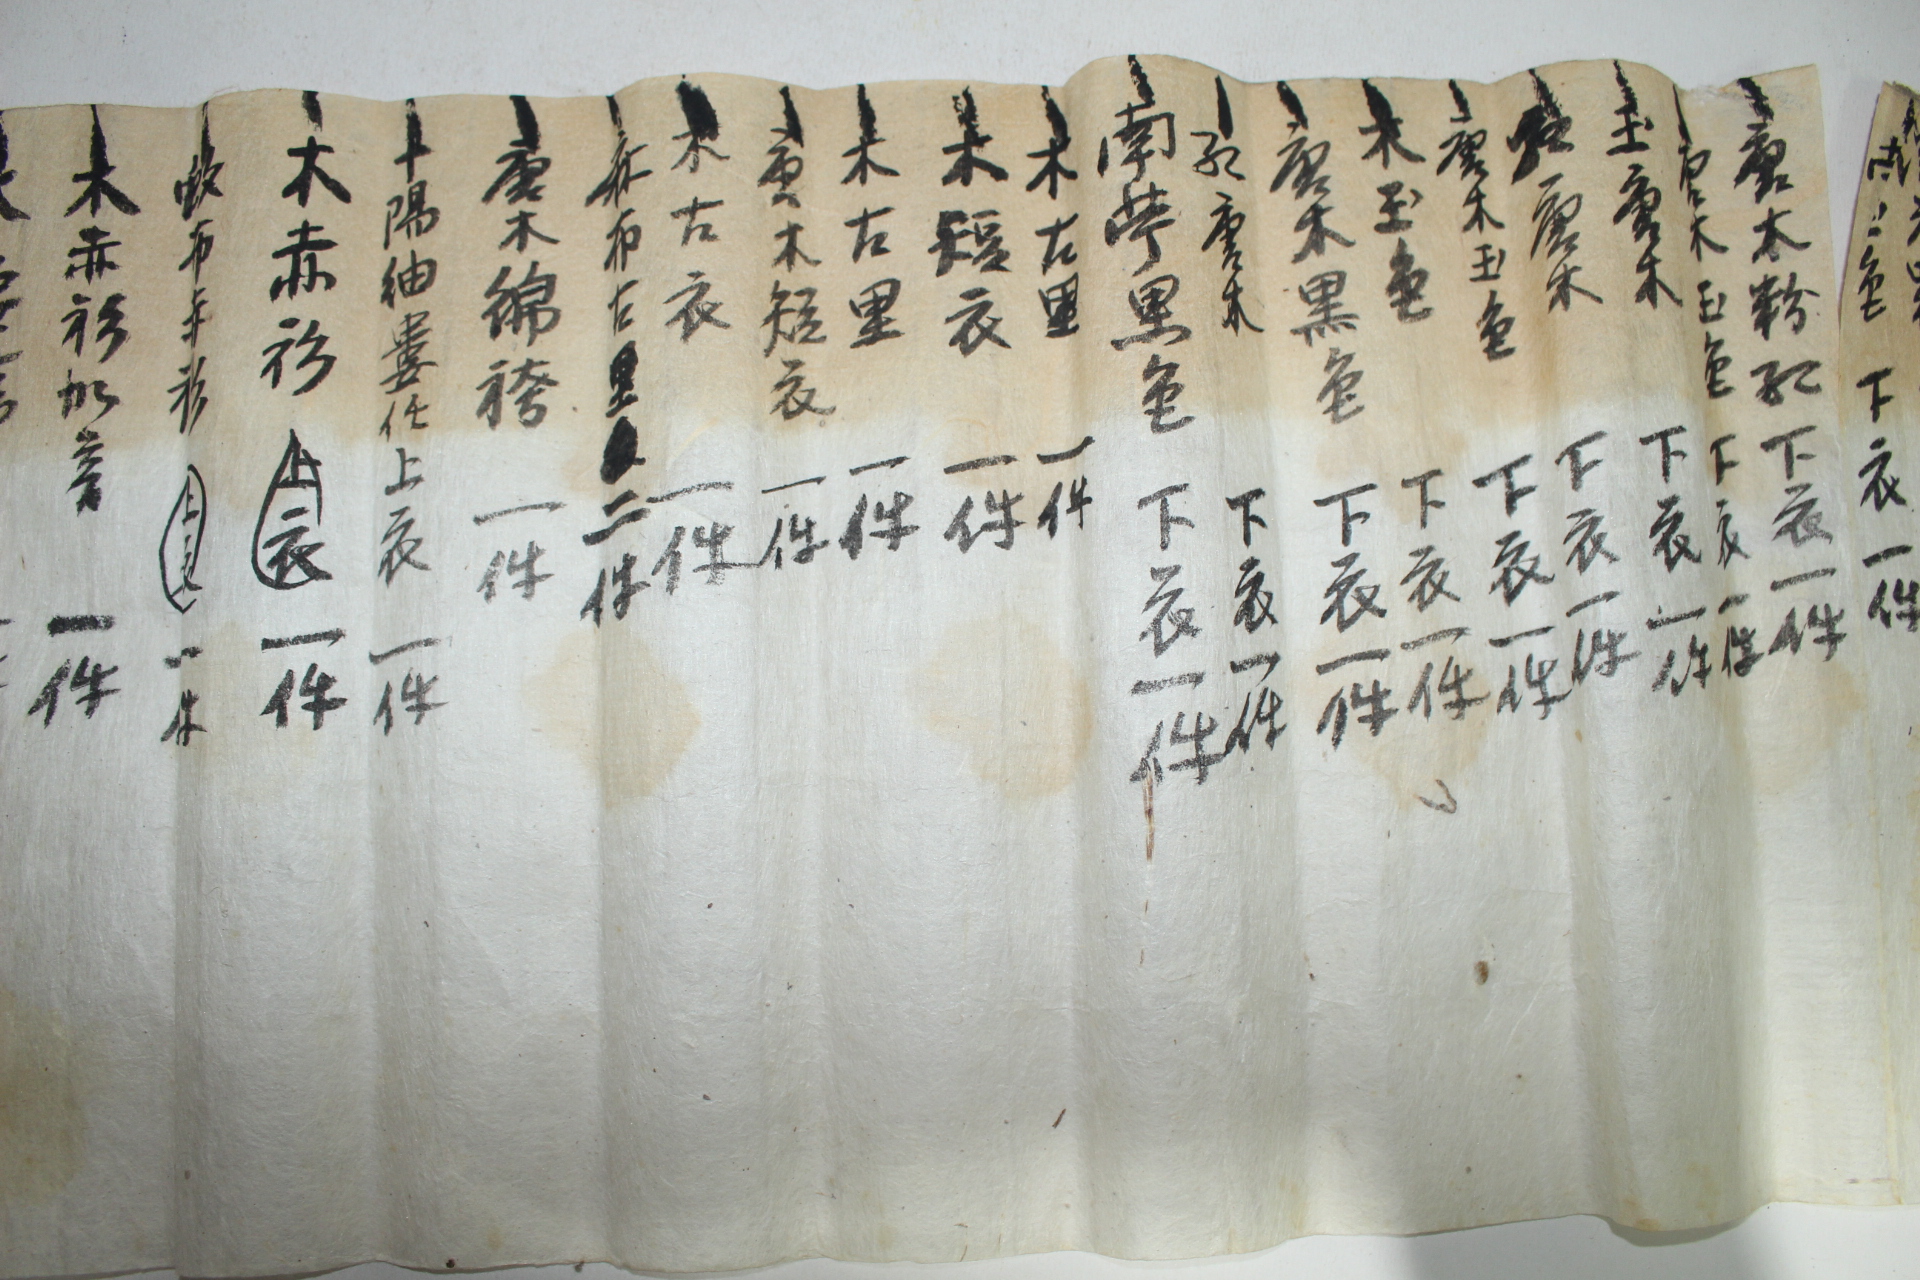 下衣一件
唐木粉紅下衣一件
唐木玉色下衣一件
玉唐木下衣一件
紅唐木下衣一件
唐木玉色下衣一件
木玉色下衣一件
唐木黑色下衣一件
紅唐木下衣一件
南苧黑色下衣一件
木古里一件
木短衣一件
木古里一件
唐木短衣一件
木古衣一件
麻布古里二件
唐木綿袴一件
十陽紬婁仕上衣一件
木赤衫上衣一件
布赤衫上衣一件
木赤衫加音一件